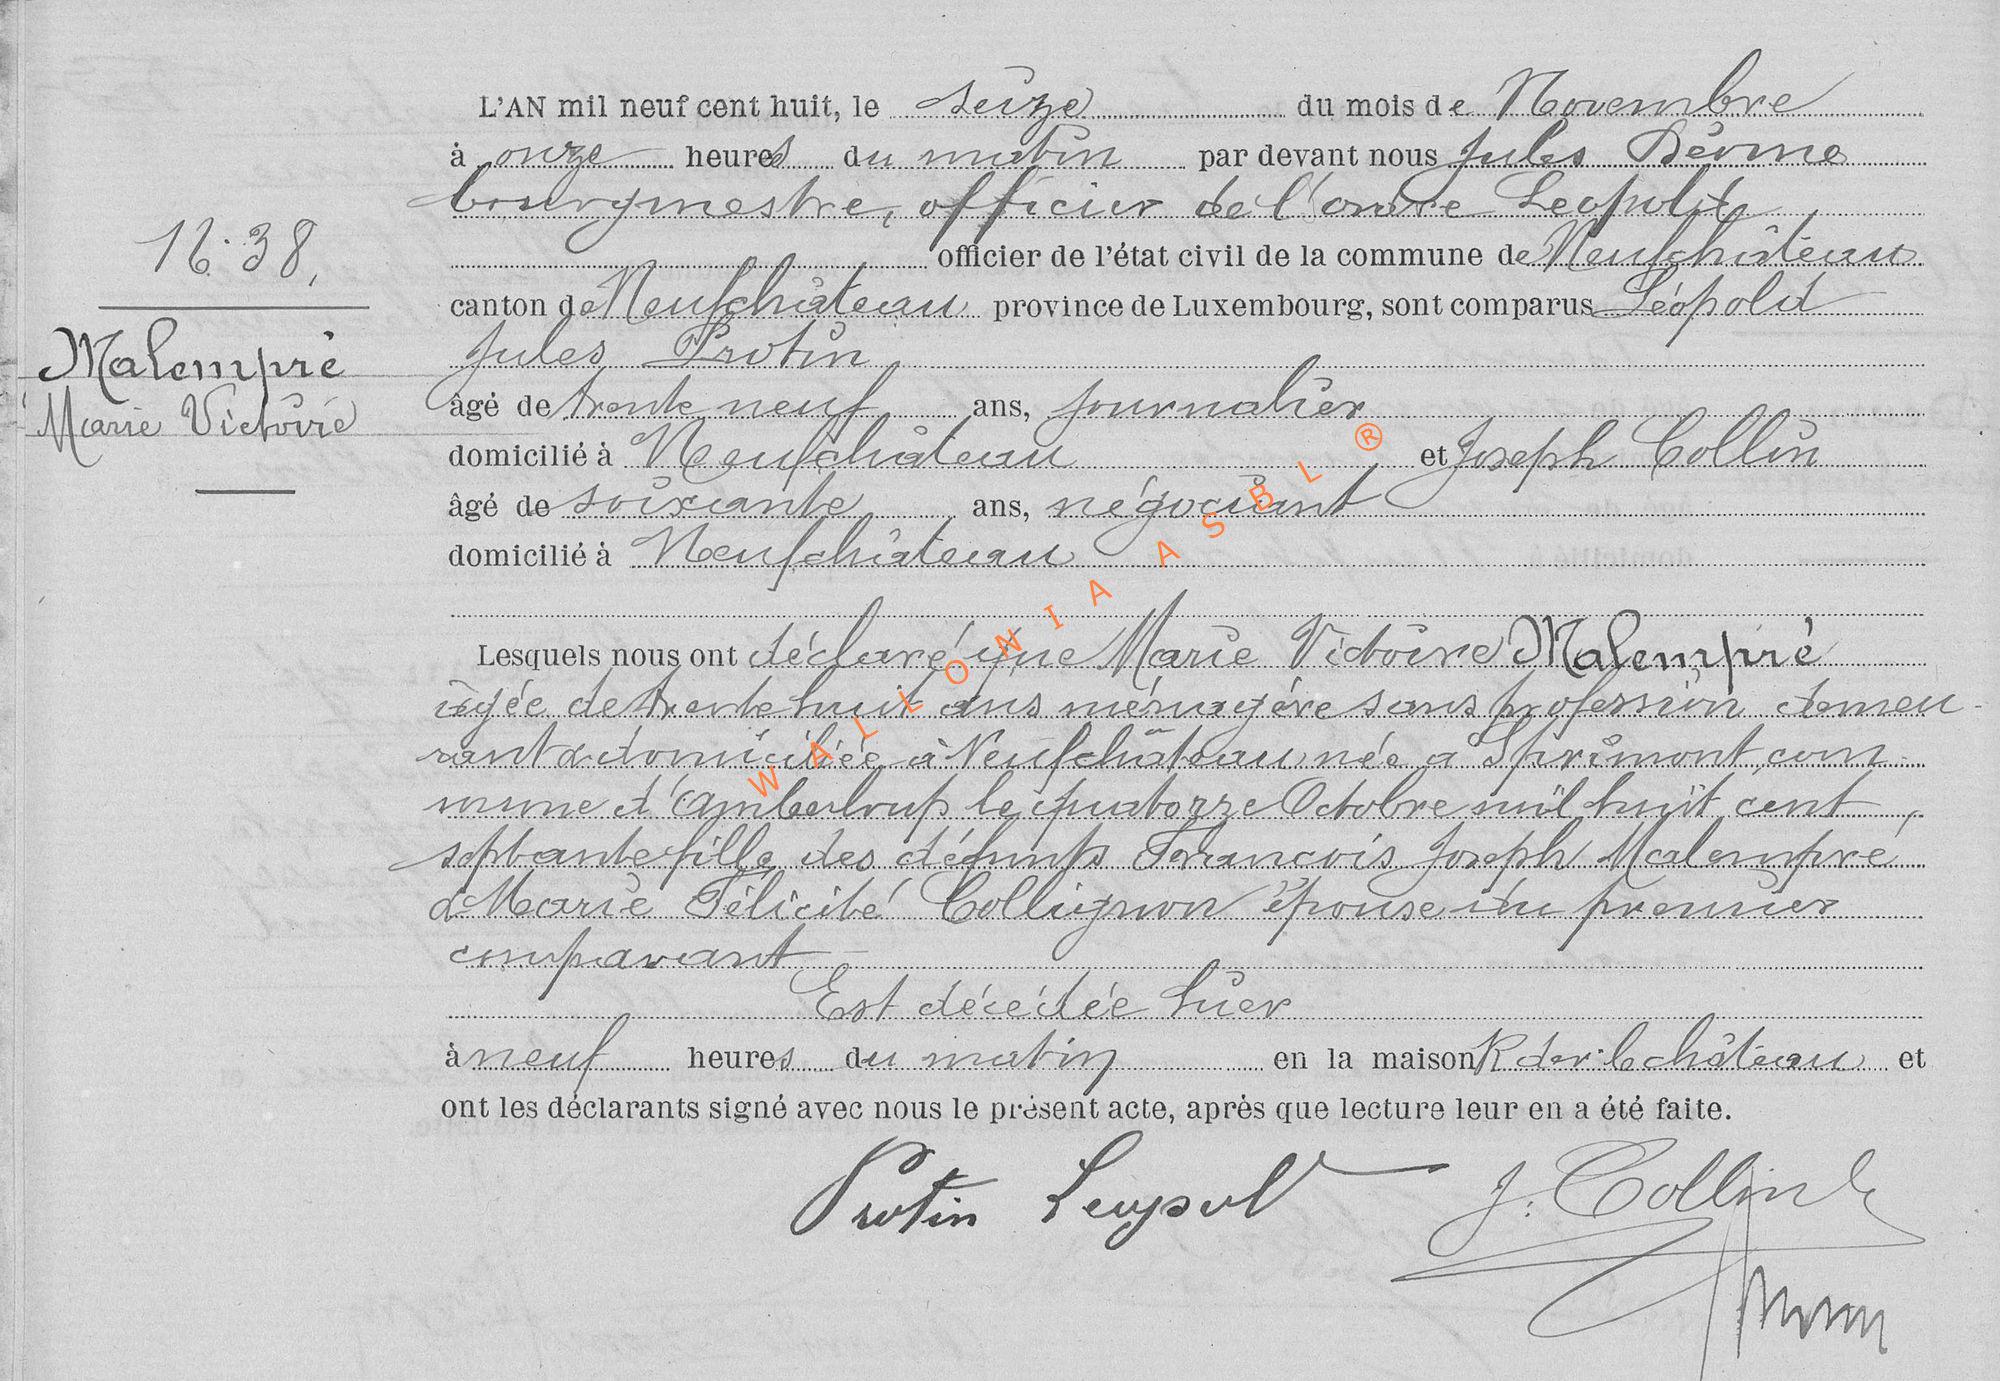 L'AN mil neuf cent huit, le seize du mois de Novembre
à onze heures du matin par devant nous Jules
bourgmestre, officier de l'ordre Léopold
officier de l'état civil de la commune de Neufchâteau
N. 38,
canton de Neufchâteau province de Luxembourg, sont comparus Léopold
Malempré
Jules Protin
Marie Victoire
âgé de trente neuf ans, journalier
domicilié à Neufchâteau et Joseph Collin
âgé de soixante ans, négociant
domicilié à Neufchâteau
Lesquels nous ont déclaré que Marie Victoire Malempré
âgée de trente huit ans ménagère sans profession demeu-
rant & domiciliée à Neufchâteau née à Sprimont, com-
mune d'Amberloup le quatorze Octobre mil huit cent
septante fille des défunts François Joseph Malempré
& Marie Félicité Collignon épouse du premier
comparant
Est décédée hier
à neuf heures du matin en la maison R. der. le château et
ont les déclarants signé avec nous le présent acte, après que lecture leur en a été faite.
Protin Leopol J. Collin
WALLONIA ASBL ®